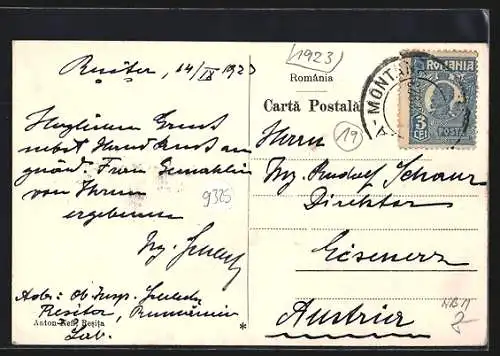 Resița, 14/IX 1923
Herzlichen Gruss
nebst Handkuss an
gnäd. Frau Gemahlin
von Ihrem
ergebenen
Ing.
9325
Adr: Ob. Insp.
Resița, Rumänien
Anton Neff, Reșița
(1923)
România
Cartă Postală
19
MONTAN
ROMANIA
3
LEI
POSTA
Herrn
Ing. Rudolf Schaur
Direktor
Eisenerz
Austria